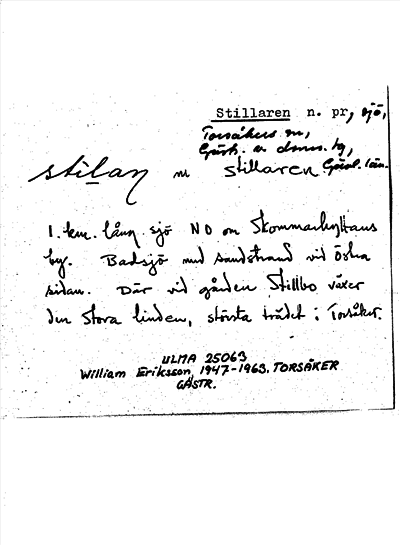 Stillaren n. pr, sjö,
Torsåkers sn,
Gästr. v. doms. hg,
Gävl. län.
stilan m Stillaren
1. km. lång sjö NO om Skommarhyttans
by. Badsjö med sandstrand vid Östra
sidan. Där vid gården Stillbo växer
den stora linden, största trädet i Torsåker.
ULMA 25063
William Eriksson, 1947-1963. TORSÅKER
GÄSTR.